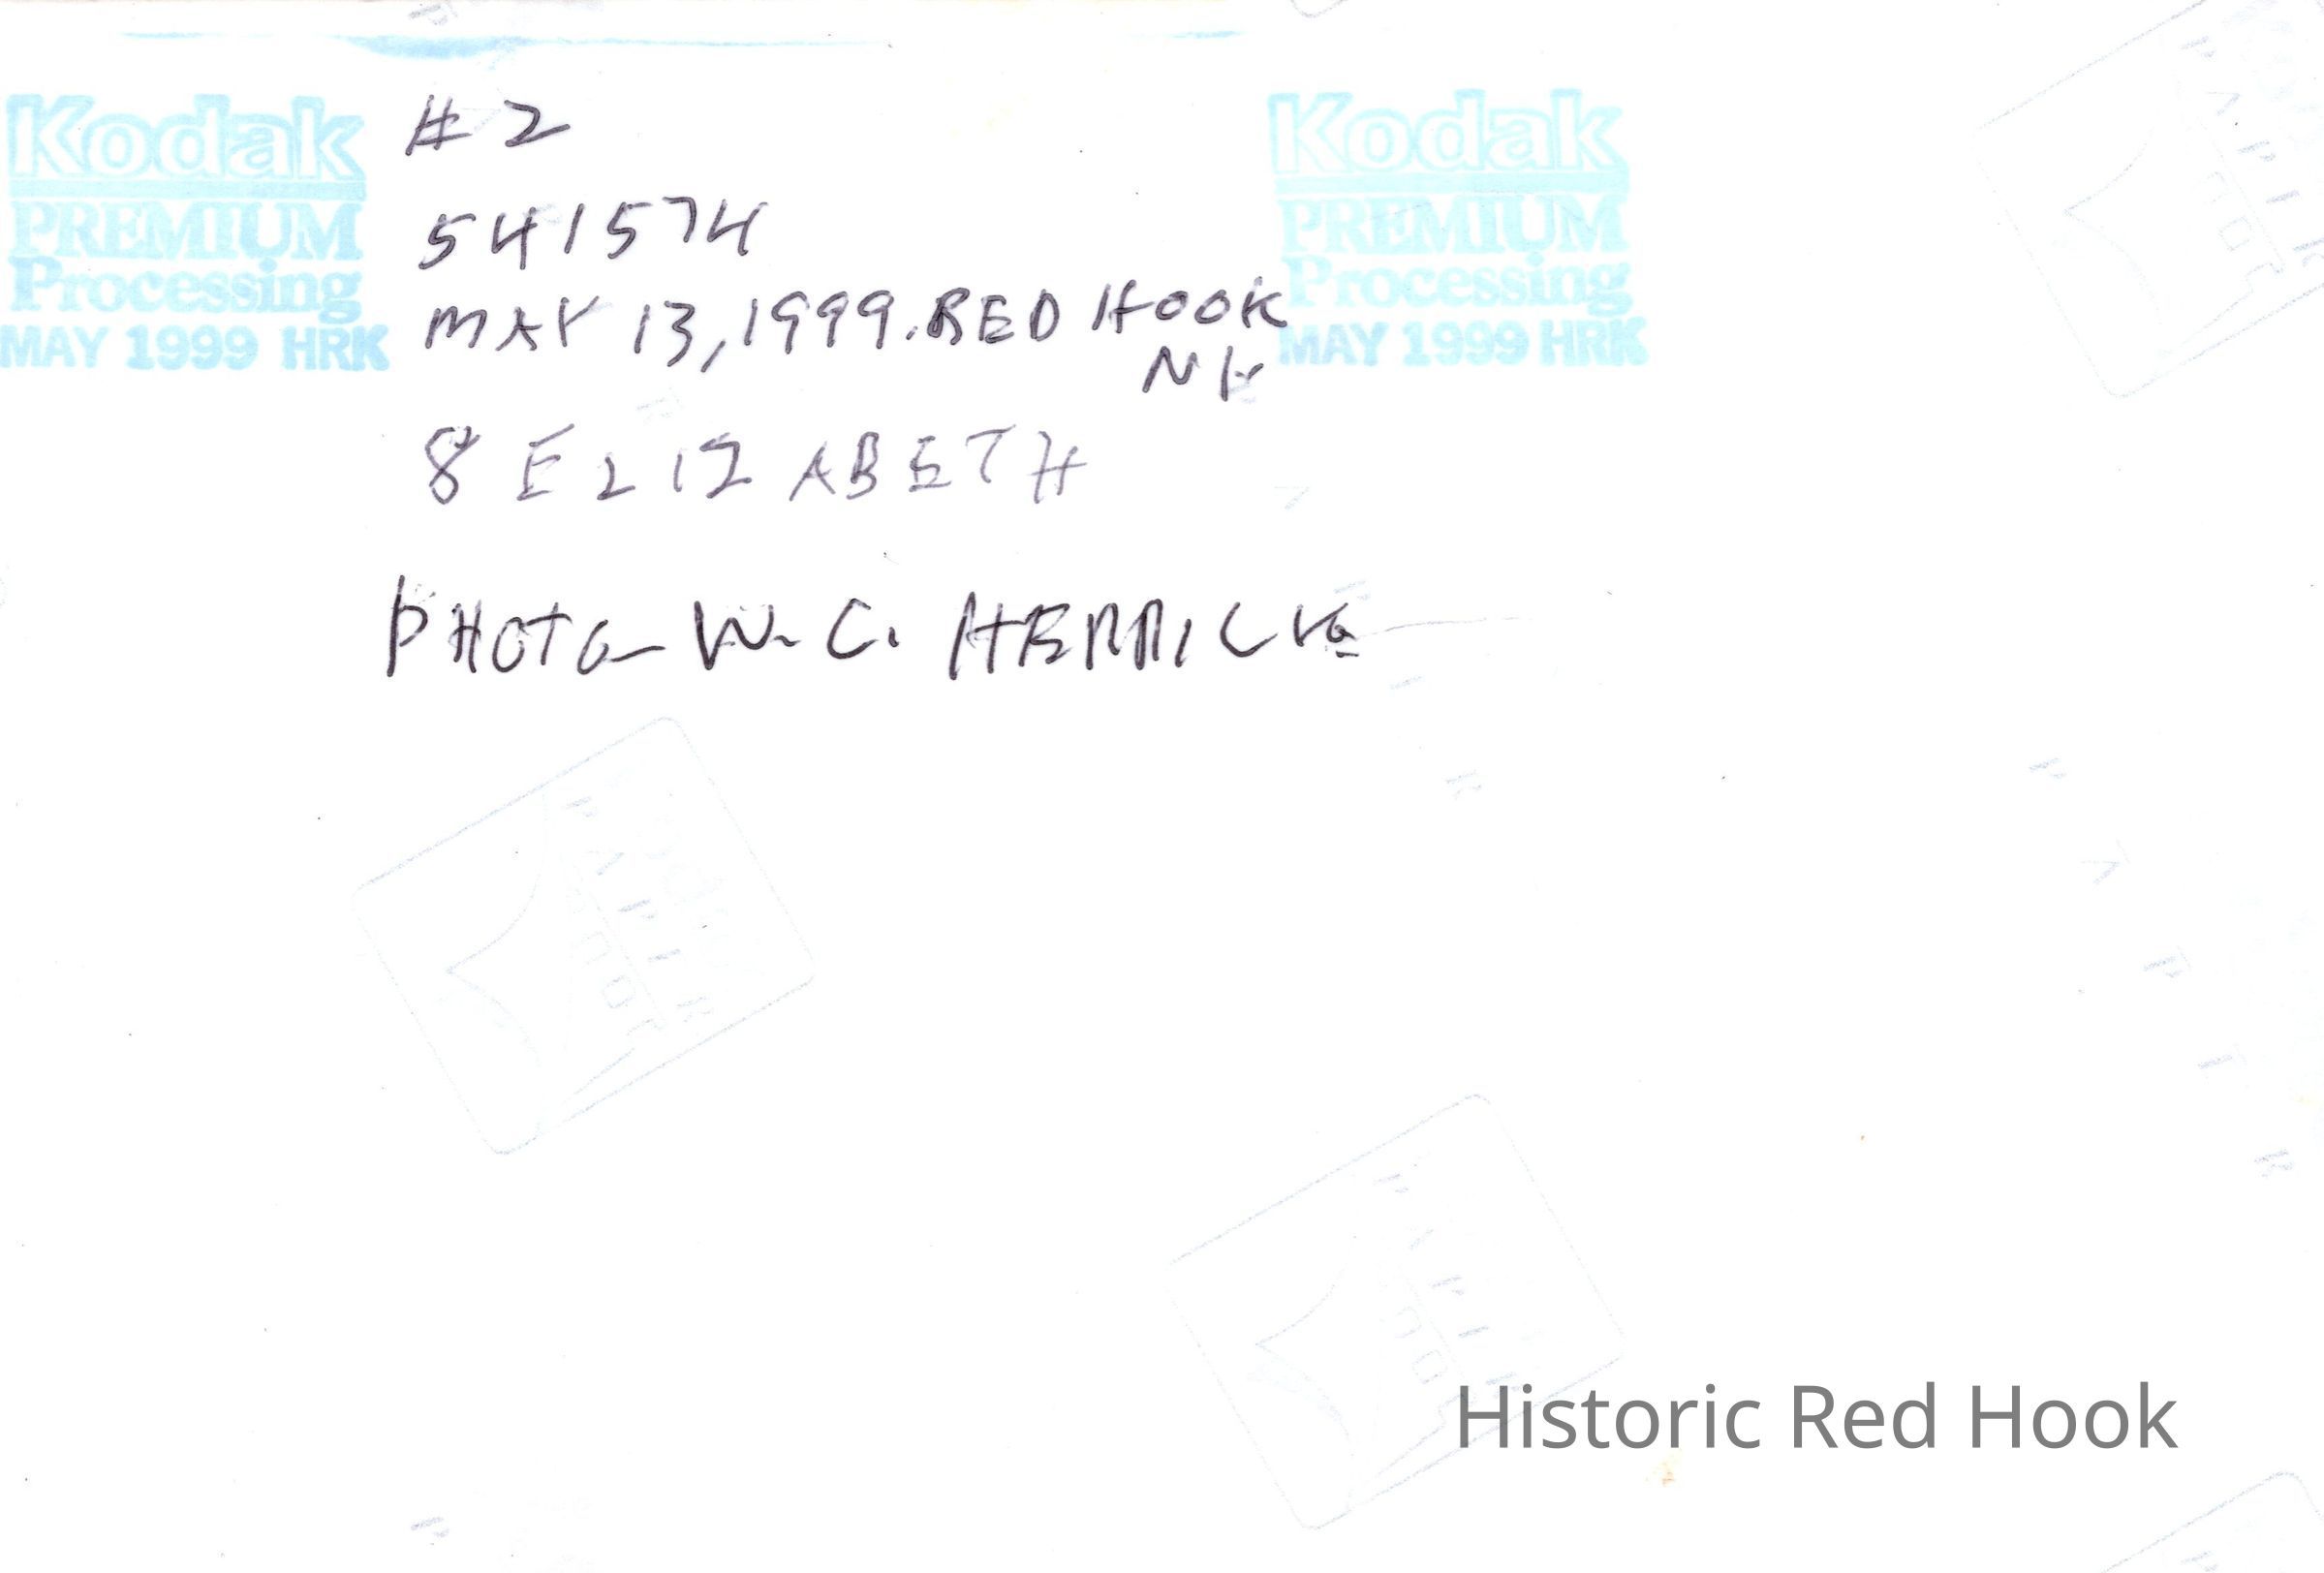 Kodak
PREMIUM
Processing
MAY 1999 HRK
# 2
541574
MAY 13, 1999. RED HOOK
NY
8 ELIZABETH
PHOTO - W. C. HERRICK
Kodak
PREMIUM
Processing
MAY 1999 HRK
Historic Red Hook